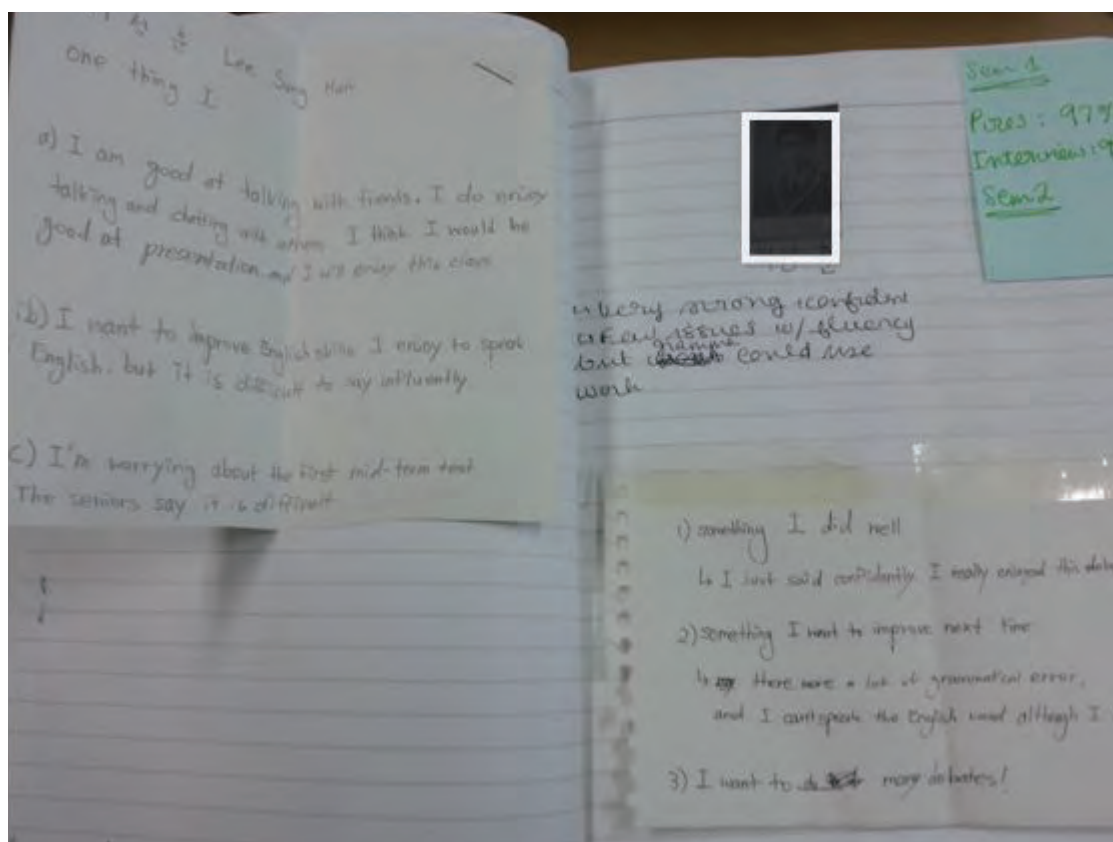 Lee Sung Han
one thing I
a) I am good at talking with friends. I do enjoy
talking and chatting with others I think I would be
good at presentation and I will enjoy this class
b) I want to improve English I enjoy to speak
English. but it is difficult to say influently
c) I'm worrying about the first mid-term test
The seniors say it is difficult
Sem 1
Pres: 97%
Interview: 9
Sem 2
very strong confident
Few issues w/ fluency
grammar
but could use
work
1) something I did well
↳ I just said confidently I really enjoyed this deba
2) something I want to improve next time
↳ there were a lot of grammatical error,
and I can't speak the English word although I
3) I want to do more debates!